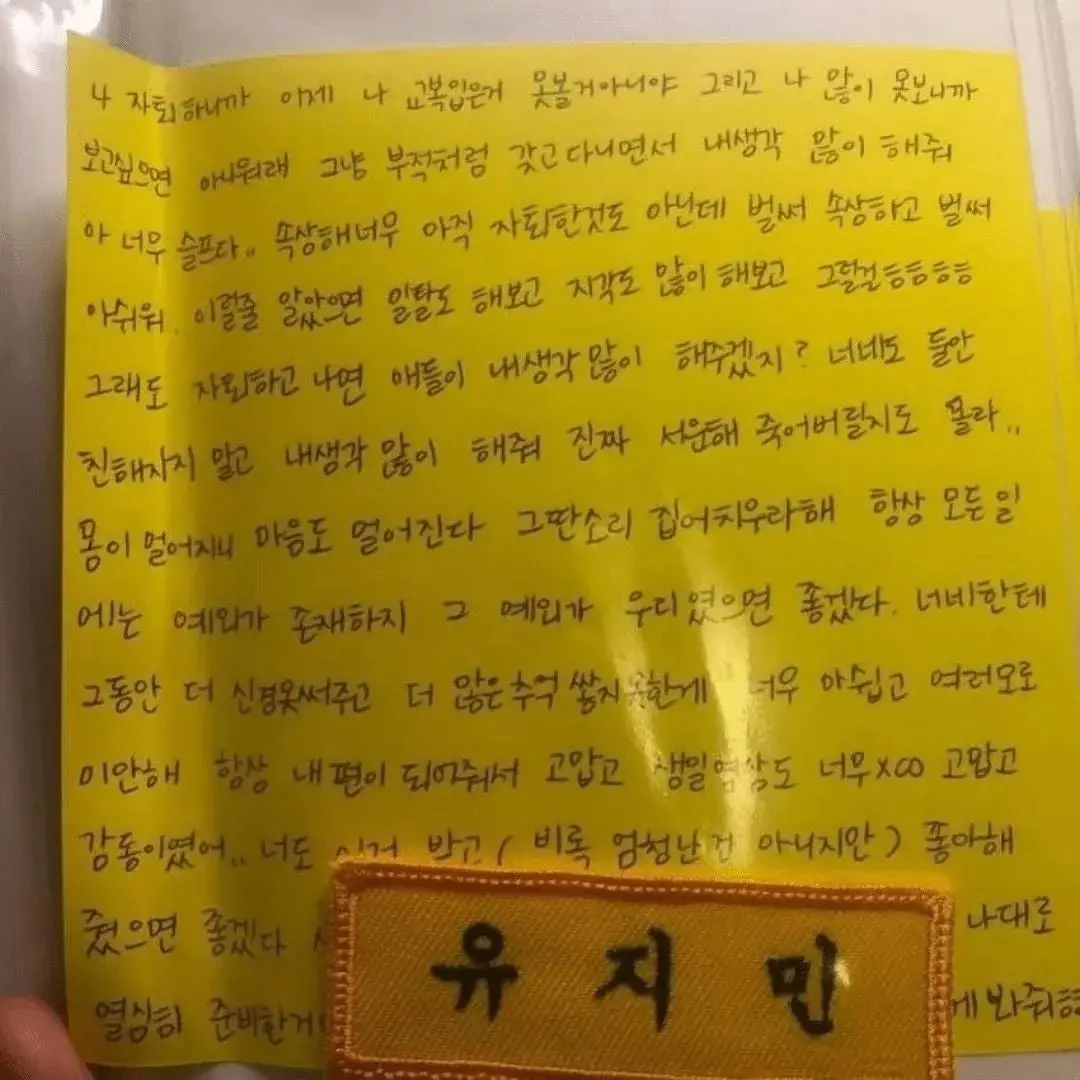 나 자퇴하니까 이제 나 교복입은거 못볼거아니야 그리고 나 많이 못보니까
보고싶으면 아쉬워래 그냥 부적처럼 갖고다니면서 내생각 많이 해줘
아 너무 슬프다.. 속상해너무 아직 자퇴한것도 아닌데 벌써 속상하고 벌써
아쉬워. 이럴줄 알았으면 일탈도 해보고 지각도 많이 해보고 그럴걸흥흥흥흥
그래도 자퇴하고 나면 애들이 내생각 많이 해주겠지? 너네도 둘만
친해지지 말고 내생각 많이 해줘 진짜 서운해 죽어버릴지도 몰라..
몸이 멀어지니 마음도 멀어진다 그딴소리 집어치우라해 항상 모든일
에는 예외가 존재하지 그 예외가 우리였으면 좋겠다. 너네한테
그동안 더 신경못써주고 더 많은추억 쌓지못한게 너무 아쉽고 여러모로
미안해 항상 내편이 되어줘서 고맙고 생일영상도 너무xoo 고맙고
감동이였어.. 너도 이거 받고 ( 비록 엄청난건 아니지만 ) 좋아해
줬으면 좋겠다 나대로
열심히 준비한거 게봐줘흥
유지민